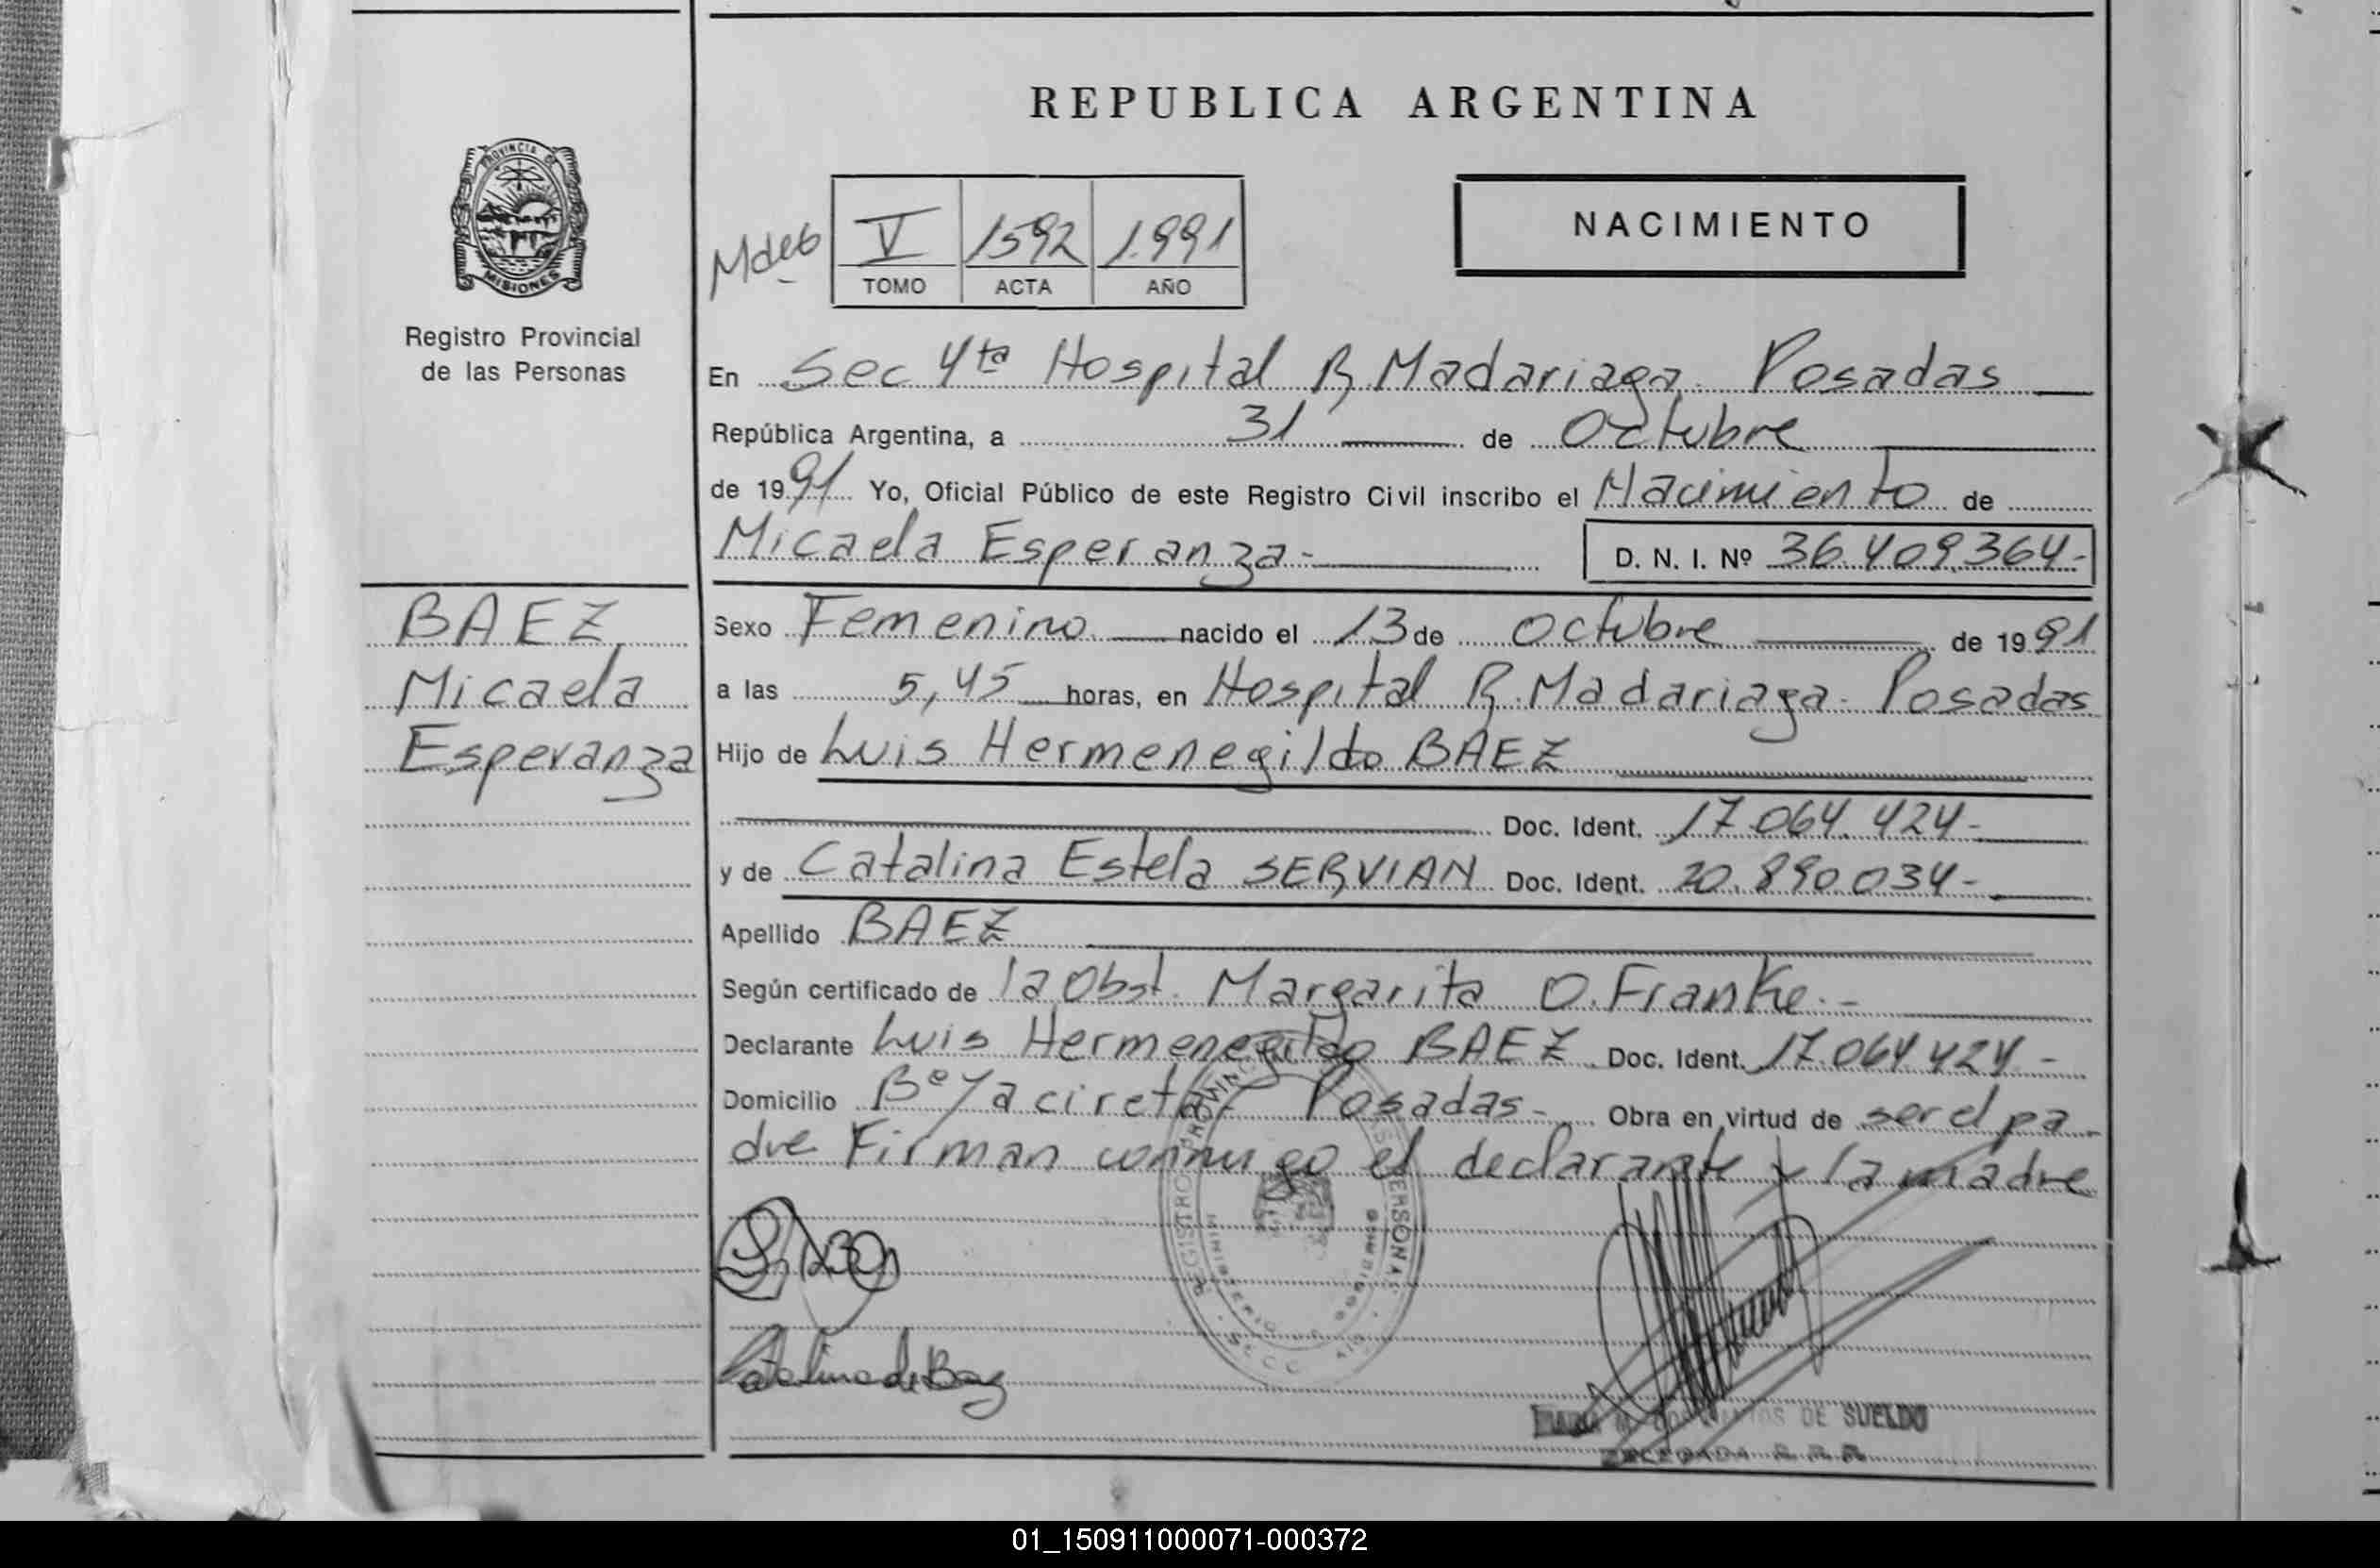 REPUBLICA ARGENTINA
PROVINCIA DE
MISIONES
Registro Provincial
de las Personas
V 1592 1.991
TOMO ACTA AÑO
NACIMIENTO
En Sec 4ta Hospital R. Madariaga. Posadas
República Argentina, a 31 de Octubre
de 1991 Yo, Oficial Público de este Registro Civil inscribo el Nacimiento de
Micaela Esperanza-
D. N. I. Nº 36.409.364-
BAEZ
Micaela
Esperanza
Sexo Femenino nacido el 13 de Octubre de 1991
a las 5,45 horas, en Hospital R. Madariaga. Posadas
Hijo de Luis Hermenegildo BAEZ
Doc. Ident. 17.064.424-
y de Catalina Estela SERVIAN Doc. Ident. 20.890.034-
Apellido BAEZ
Según certificado de la Obst. Margarita O. Franke.-
Declarante Luis Hermenegildo BAEZ Doc. Ident. 17.064.424-
Domicilio Bº Yacireta- Posadas- Obra en virtud de ser el pa-
dre Firman conmigo el declarante y la madre
Catalina de Baez
DE SUELDO
DELEGADA R. P. P.
01_150911000071-000372